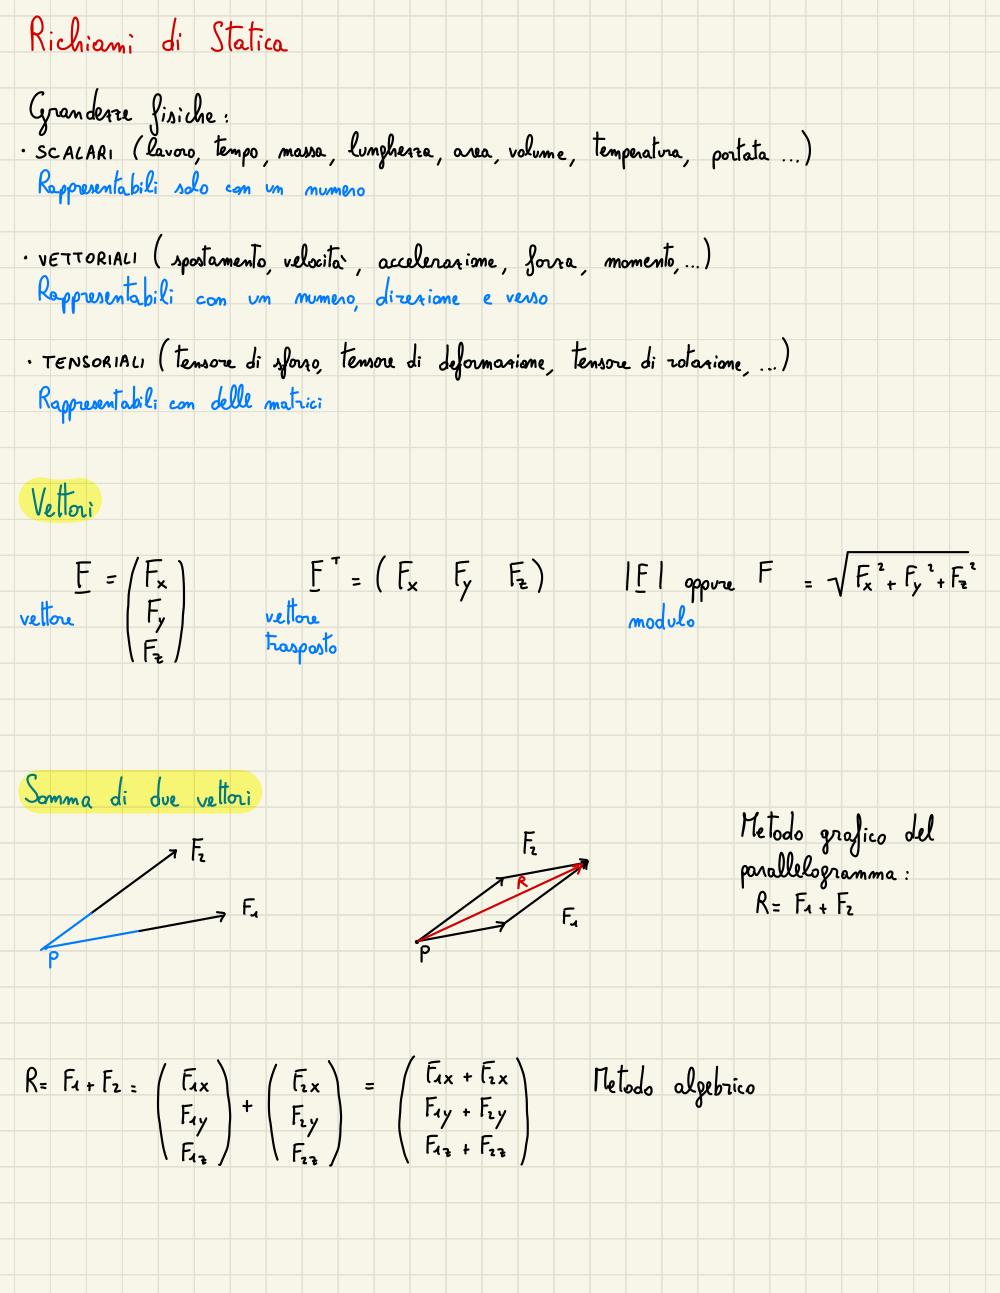 Richiami di Statica
Grandezze fisiche:
· SCALARI (lavoro, tempo, massa, lunghezza, area, volume, temperatura, portata ...)
Rappresentabili solo con un numero
· VETTORIALI (spostamento, velocità, accelerazione, forza, momento, ...)
Rappresentabili con un numero, direzione e verso
· TENSORIALI (tensore di sforzo, tensore di deformazione, tensore di rotazione, ...)
Rappresentabili con delle matrici
Vettori
F = (Fx
Fy
Fz)
vettore
F^T = (Fx Fy Fz)
vettore
trasposto
|F| oppure F = √(Fx² + Fy² + Fz²)
modulo
Somma di due vettori
F₂
F₁
P
F₂
R
F₁
P
Metodo grafico del
parallelogramma:
R= F₁ + F₂
R= F₁ + F₂ = (F₁x F₁y F₁z) + (F₂x F₂y F₂z) = (F₁x + F₂x
F₁y + F₂y
F₁z + F₂z)
Metodo algebrico